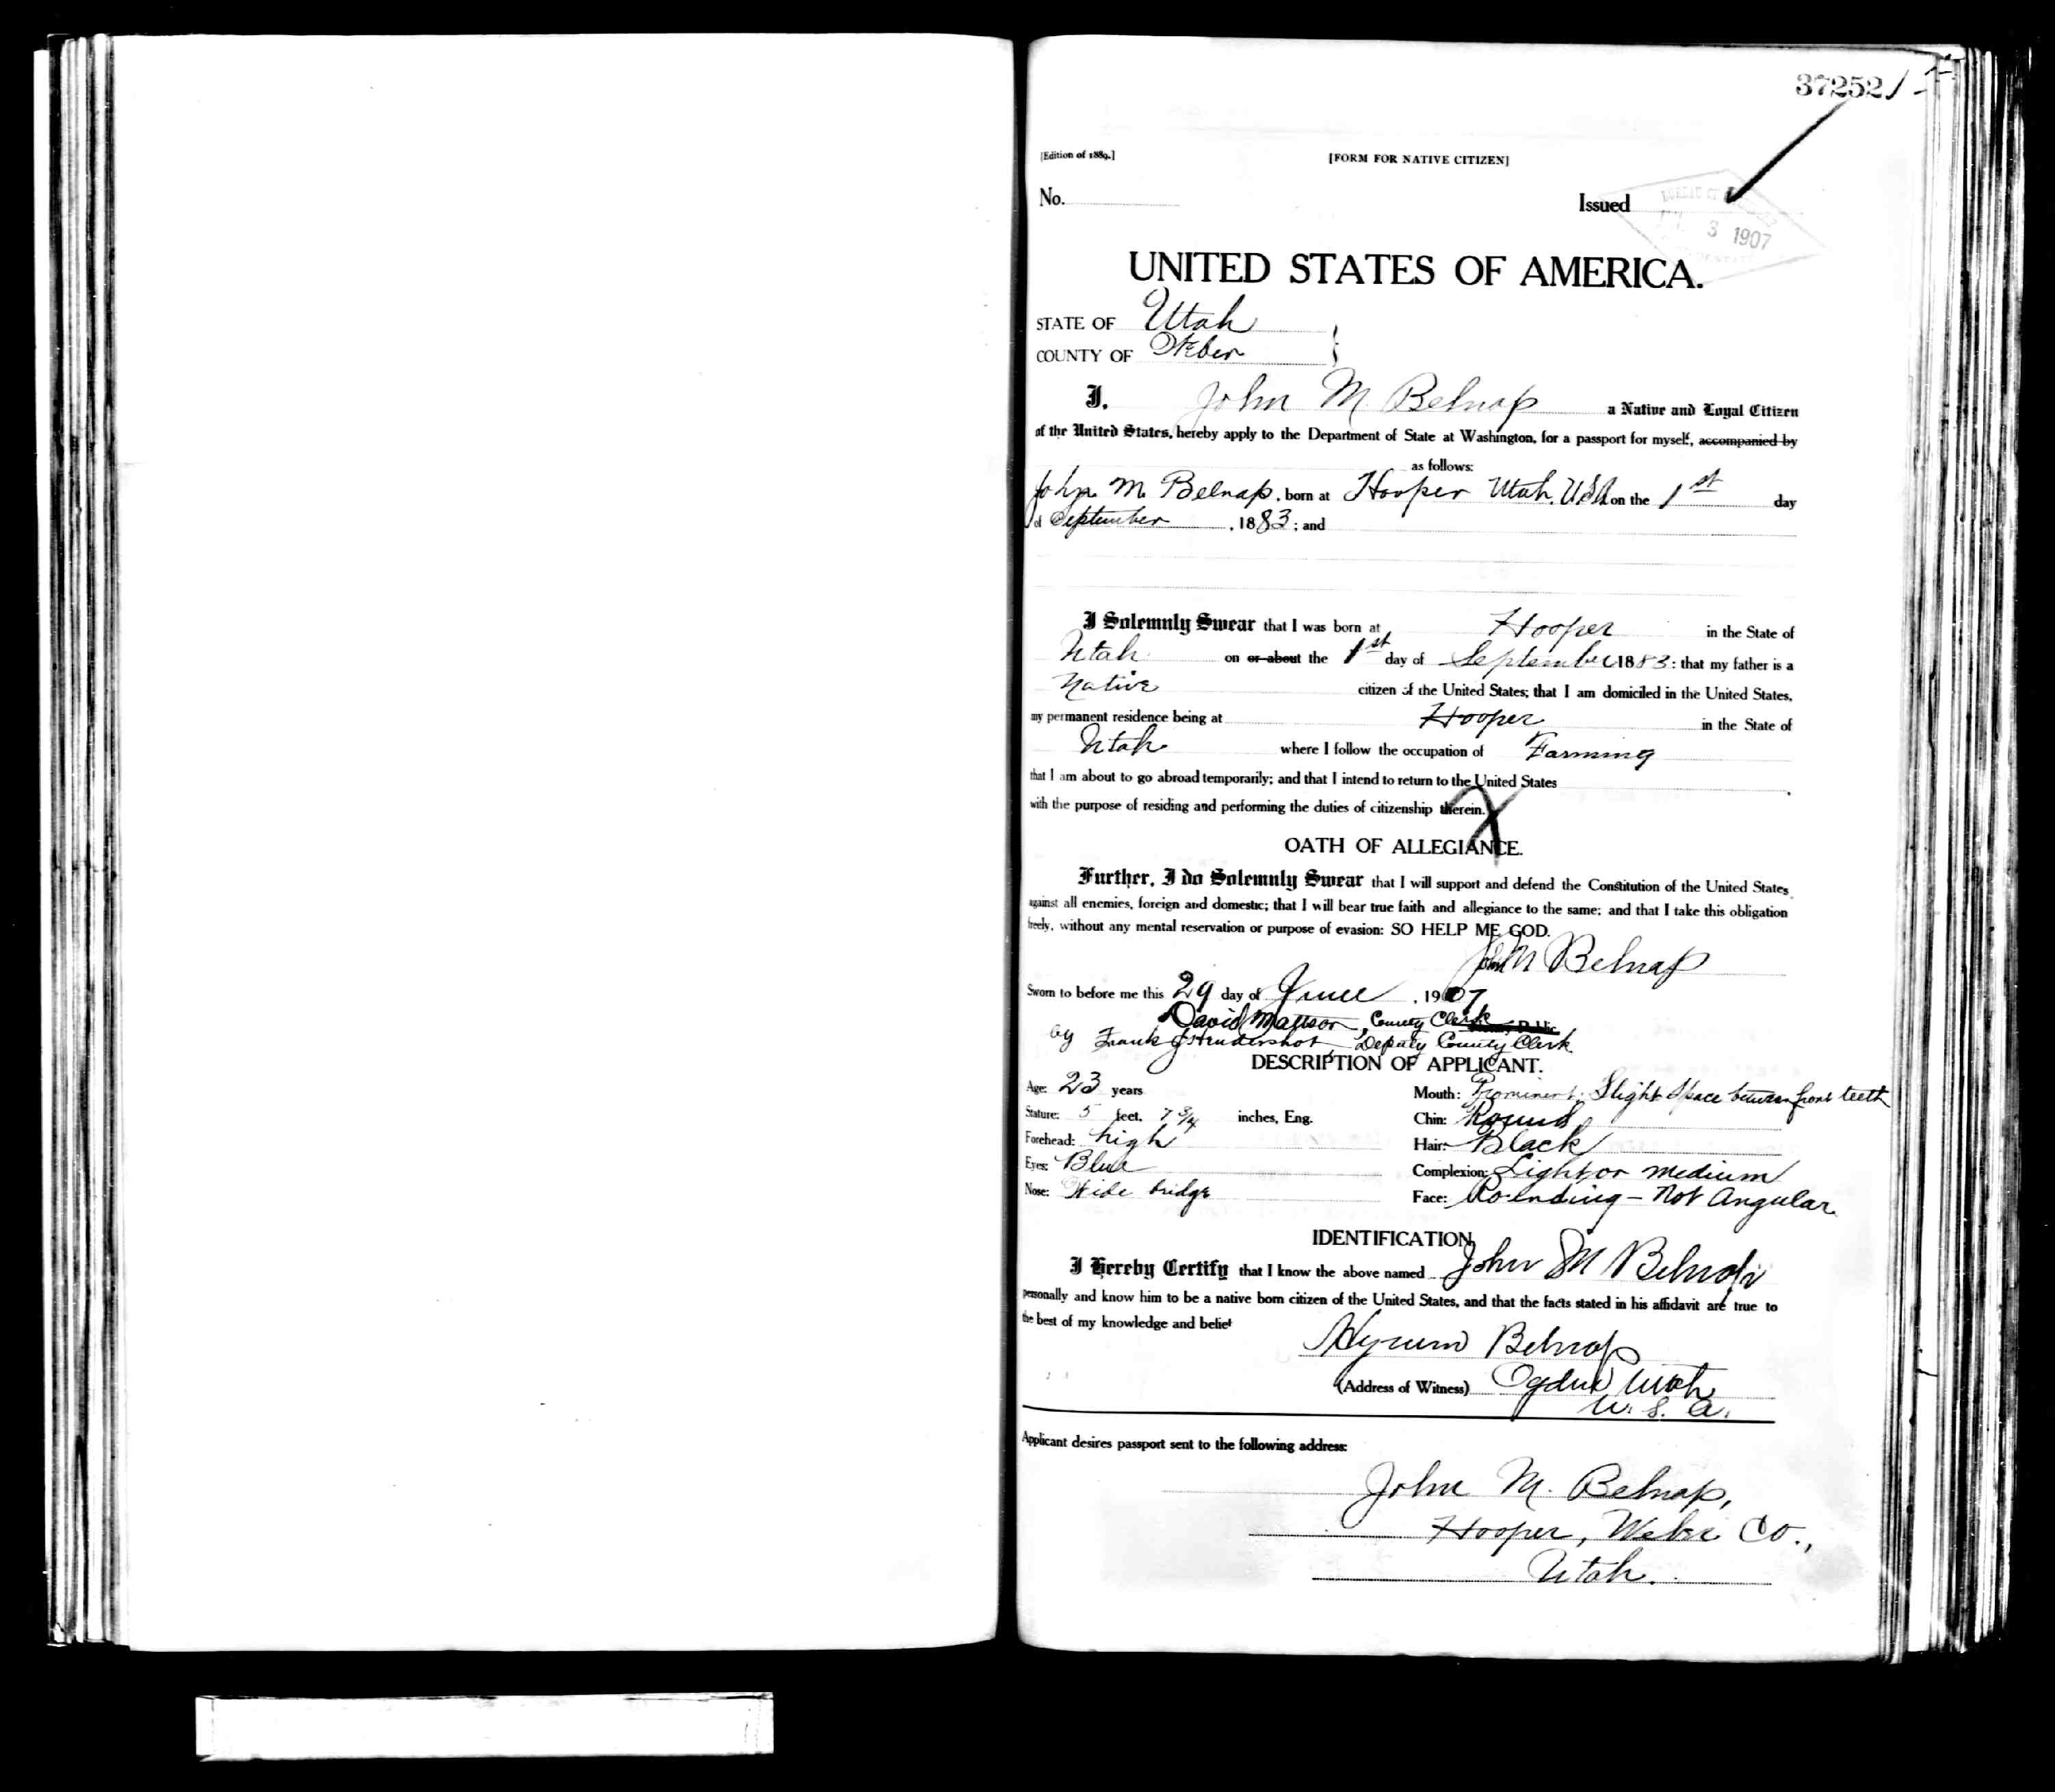 37252
[Edition of 1889.]
[FORM FOR NATIVE CITIZEN]
No.
Issued
BUREAU OF
3 1907
UNITED STATES OF AMERICA.
STATE OF Utah
COUNTY OF Weber
I, John M Belnap a Native and Loyal Citizen
of the United States, hereby apply to the Department of State at Washington, for a passport for myself, accompanied by
as follows:
John M. Belnap, born at Hooper Utah, U.S.A on the 1st day
of September, 1883; and
I Solemnly Swear that I was born at Hooper in the State of
Utah on or about the 1st day of September, 1883: that my father is a
Native citizen of the United States; that I am domiciled in the United States,
my permanent residence being at Hooper in the State of
Utah where I follow the occupation of Farming
that I am about to go abroad temporarily; and that I intend to return to the United States
with the purpose of residing and performing the duties of citizenship therein.
OATH OF ALLEGIANCE.
Further, I do Solemnly Swear that I will support and defend the Constitution of the United States
against all enemies, foreign and domestic; that I will bear true faith and allegiance to the same; and that I take this obligation
freely, without any mental reservation or purpose of evasion: SO HELP ME GOD.
John M Belnap
Sworn to before me this 29 day of June, 1907
David Mattson, County Clerk
by Frank J Hendershot, Deputy County Clerk
DESCRIPTION OF APPLICANT.
Age: 23 years
Mouth: Prominent; Slight space between front teeth
Stature: 5 feet, 7 3/4 inches, Eng.
Chin: Round
Forehead: high
Hair: Black
Eyes: Blue
Complexion: Light or medium
Nose: Wide bridge
Face: Rounding - Not Angular
IDENTIFICATION
I Hereby Certify that I know the above named John M Belnap
personally and know him to be a native born citizen of the United States, and that the facts stated in his affidavit are true to
the best of my knowledge and belief
Hyrum Belnap
(Address of Witness) Ogden Utah
U. S. A.
Applicant desires passport sent to the following address:
John M. Belnap,
Hooper, Weber Co.,
Utah.